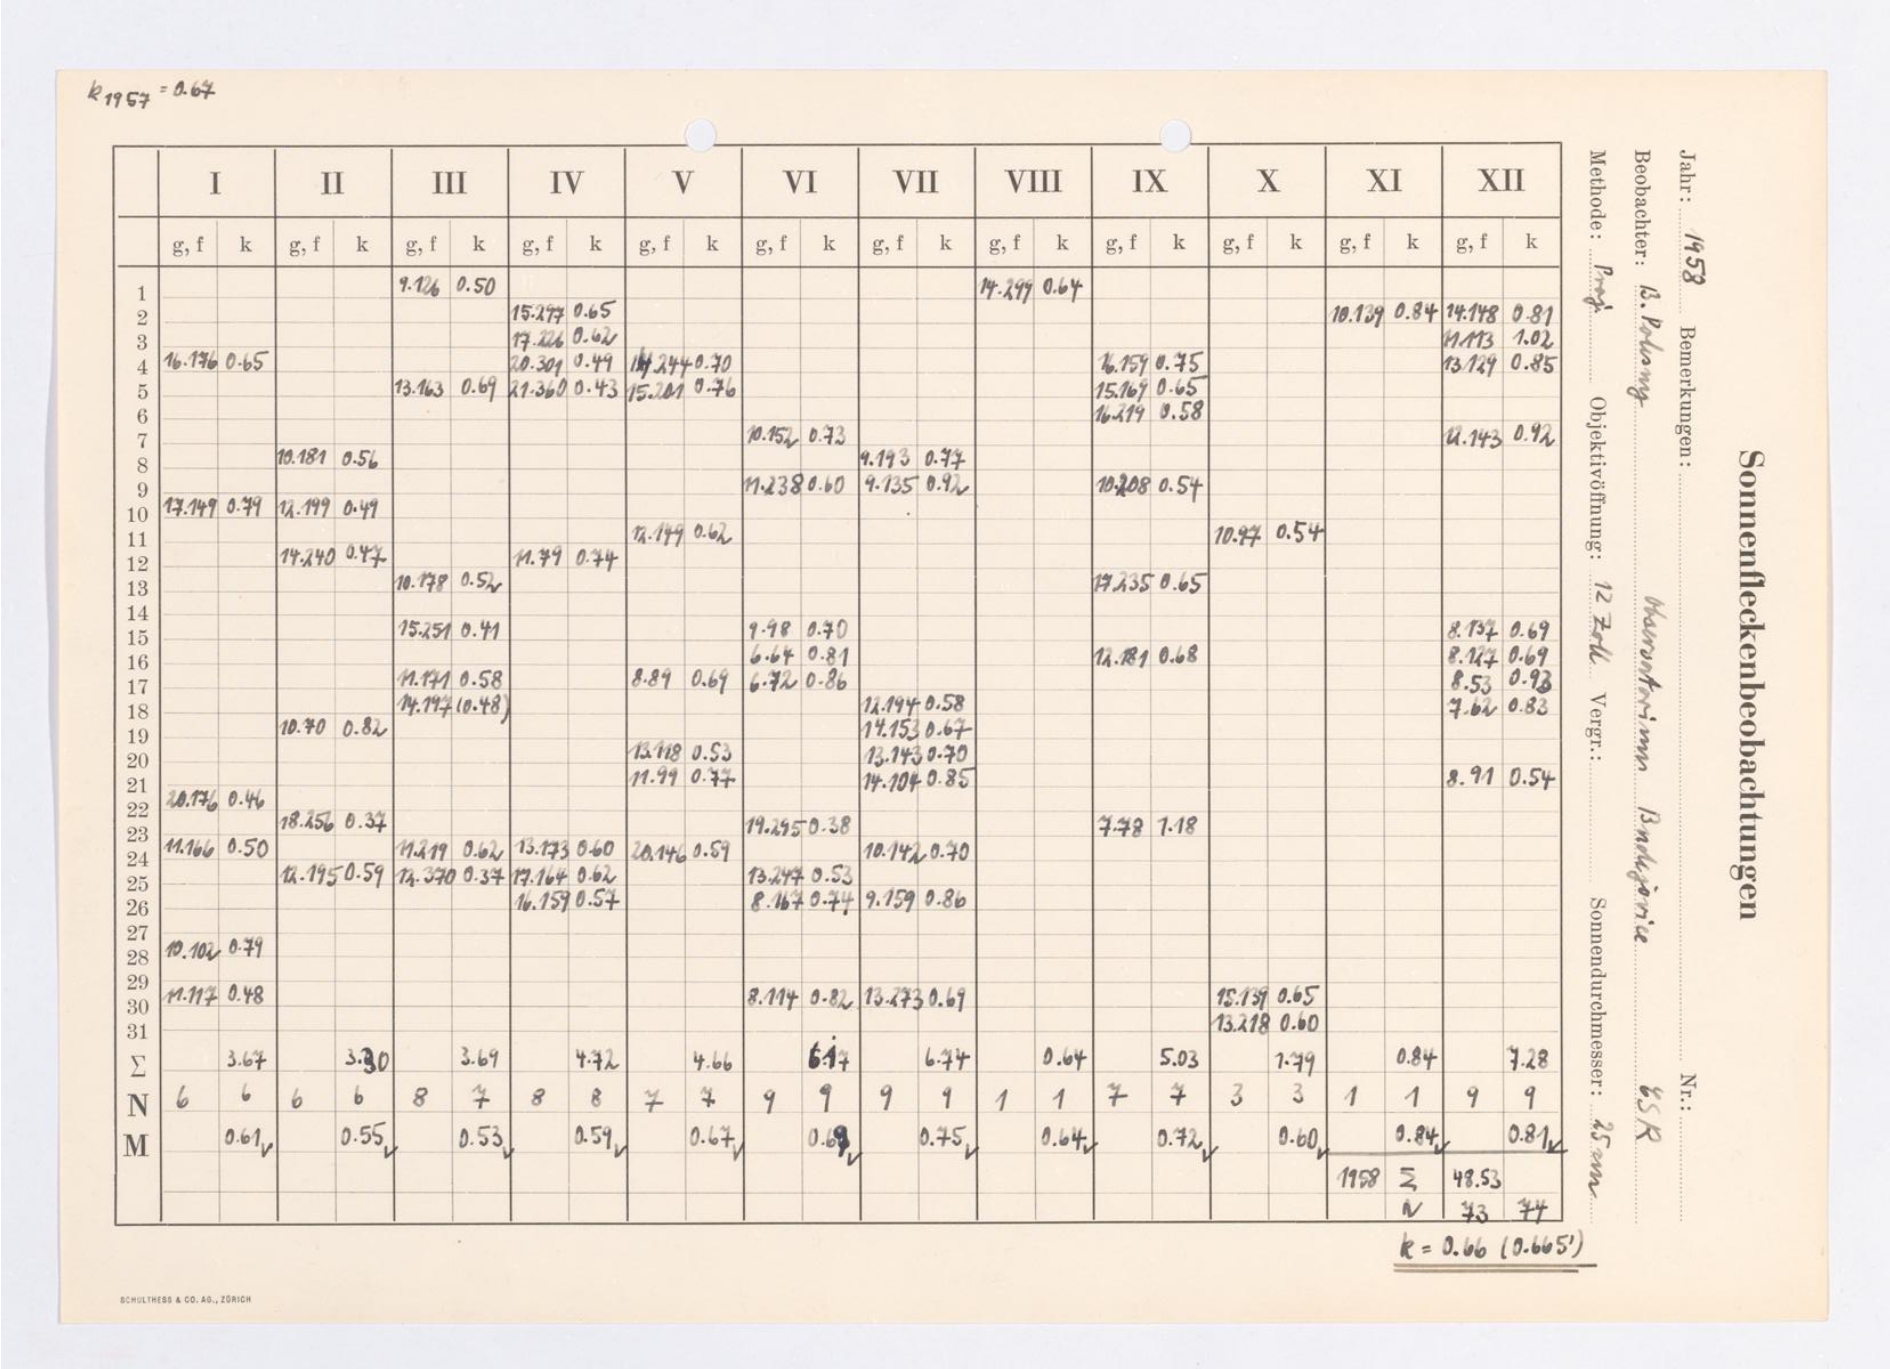 k 1957 = 0.67
Sonnenfleckenbeobachtungen
Jahr: 1958 Bemerkungen: Nr.:
Beobachter: B. Observatorium ČSR
Methode: Proj Objektivöffnung: 12 Zoll Vergr.: Sonnendurchmesser: 25 mm
I II III IV V VI VII VIII IX X XI XII
g, f k g, f k g, f k g, f k g, f k g, f k g, f k g, f k g, f k g, f k g, f k g, f k
1 9.126 0.50 14.299 0.64
2 15.297 0.65 10.139 0.84 14.148 0.81
3 17.226 0.62 11.113 1.02
4 16.176 0.65 20.301 0.49 14.244 0.70 16.159 0.75 13.129 0.85
5 13.163 0.69 21.360 0.43 15.201 0.76 15.169 0.65
6 16.219 0.58
7 10.152 0.73 12.143 0.92
8 10.181 0.56 9.193 0.77
9 11.238 0.60 9.135 0.92 10.208 0.54
10 17.149 0.79 12.199 0.49
11 12.149 0.62 10.97 0.54
12 14.240 0.47 11.79 0.74
13 10.178 0.52 17.235 0.65
14
15 15.251 0.41 9.98 0.70 8.137 0.69
16 6.64 0.81 12.181 0.68 8.127 0.69
17 11.171 0.58 8.89 0.69 6.72 0.86 8.53 0.93
18 14.197 (0.48) 12.194 0.58 7.62 0.83
19 10.70 0.82 14.153 0.67
20 13.118 0.53 13.143 0.70
21 11.99 0.77 14.104 0.85 8.91 0.54
22 20.176 0.46
23 18.256 0.37 19.295 0.38 7.78 1.18
24 11.166 0.50 11.219 0.62 13.173 0.60 20.146 0.59 10.142 0.70
25 12.195 0.59 12.370 0.37 17.164 0.62 13.247 0.53
26 16.159 0.57 8.167 0.74 9.159 0.86
27
28 10.102 0.79
29
30 11.117 0.48 8.114 0.82 13.273 0.69 15.139 0.65
31 13.218 0.60
Σ 3.67 3.30 3.69 4.72 4.66 6.17 6.74 0.64 5.03 1.79 0.84 7.28
N 6 6 6 6 8 7 8 8 7 7 9 9 9 9 1 1 7 7 3 3 1 1 9 9
M 0.61 0.55 0.53 0.59 0.67 0.69 0.75 0.64 0.72 0.60 0.84 0.81
1958 Σ 48.53
N 73 74
k = 0.66 (0.665')
SCHULTHESS & CO. AG., ZÜRICH